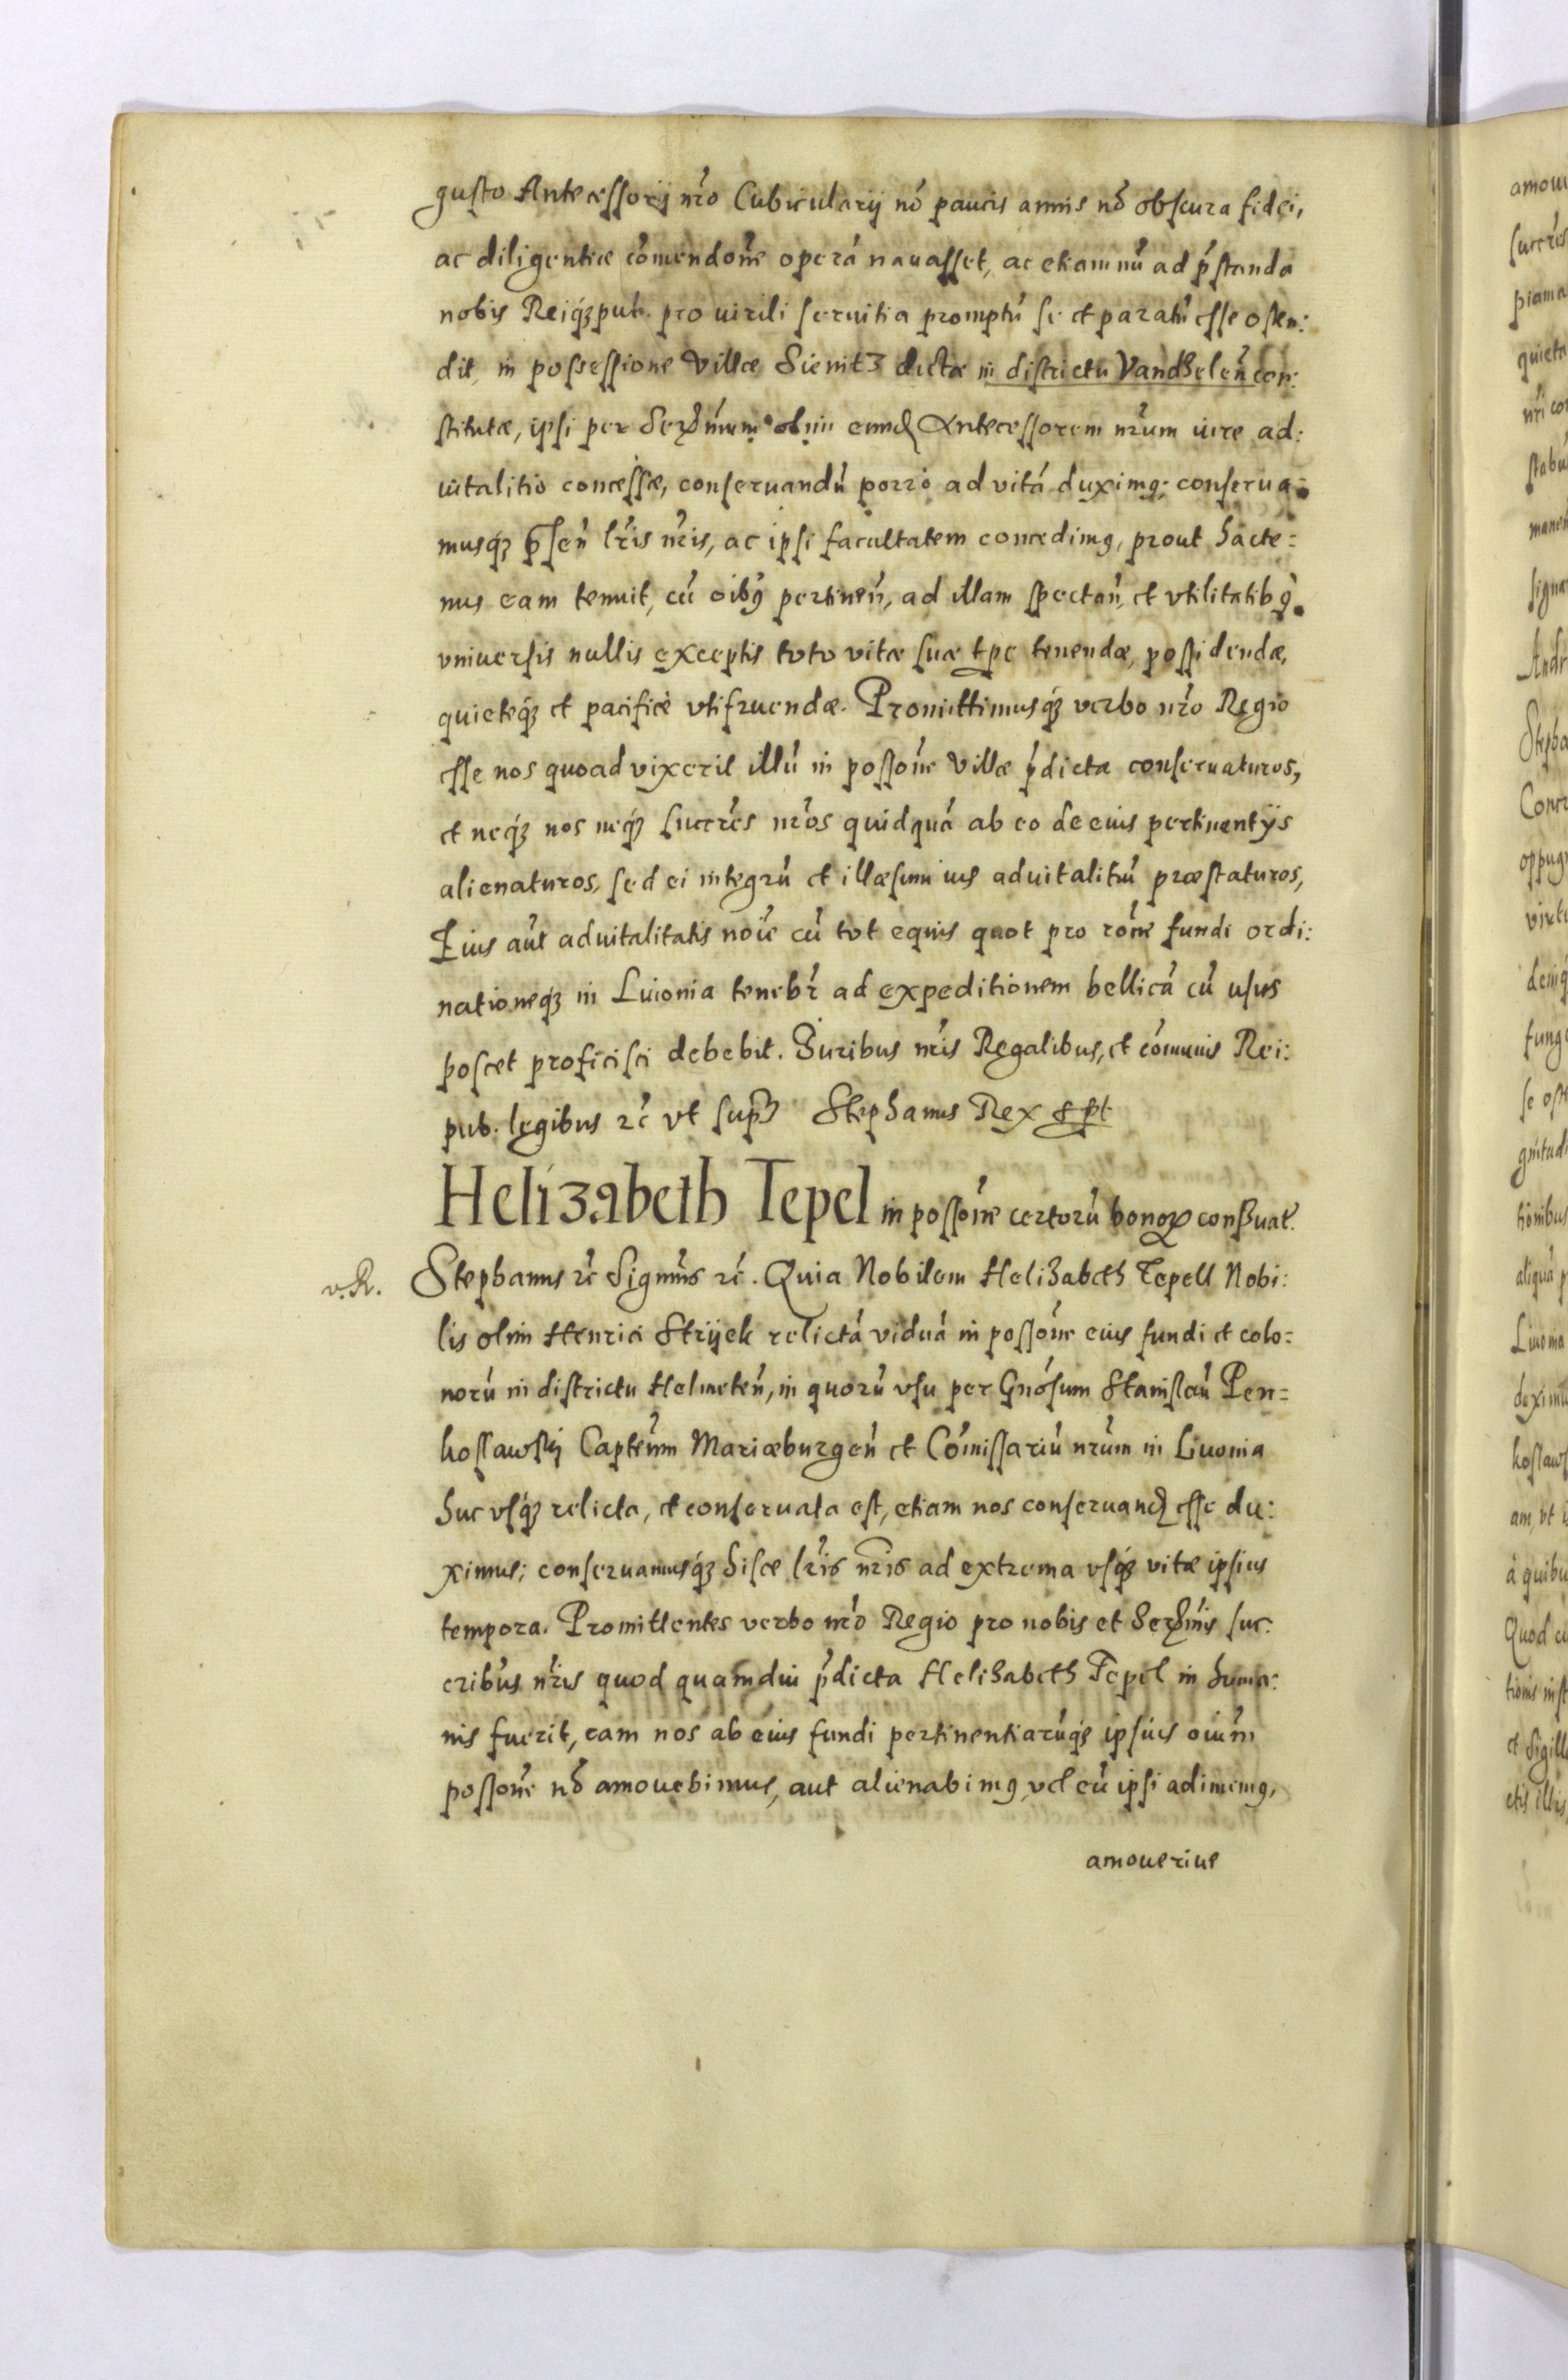 gusto Antecessorij nr̃o Cubicularij nõ paucis annis nõ obscura fidei,
ac diligentiæ com̃endoñe operã nauasset, ac etiam nũ ad p̃standa
nobis Reiq́ȝ pub. pro uirili seruitia promptũ se et paratũ esse osten:
dit, in possessione Villæ Sienitȝ dictæ in districtu Vandȝeleñ con:
stitutæ, ipsi per Serȝm̃um olim eund Antecessorem nr̃um iure ad:
uitalitio concessæ, conseruandũ porrò ad vitã duximꝰ; conserua:
musq́ȝ p̃señ lr̃is nr̃is, ac ipsi facultatem concedimꝰ, prout hacte:
nus eam tenuit, cũ oĩbꝰ pertineñ, ad illam spectañ, et vtilitatibꝰ
vniuersis nullis exceptis toto vitæ suæ tpe tenendæ, possidendæ,
quieteq́ȝ et pacificè vtifruendæ. Promittimusq́ȝ verbo nr̃o Regio
esse nos quoad vixerit illũ in possoñe Villæ p̃dicta conseruaturos,
et neq́ȝ nos neq́ȝ succr̃es nr̃os quidquã ab eo de eius pertinentijs
alienaturos, sed ei integrũ et illæsum ius aduitalitiũ præstaturos,
Eius aũt aduitalitatis noĩe cũ tot equis quot pro roñe fundi ordi:
nationeq́ȝ in Liuonia tenebr̃ ad expeditionem bellicã cũ usus
poscet proficisci debebit. Iuribus nr̃is Regalibus, et com̃unis Rei:
pub. legibus rc̃ vt sup̃ Stephanus Rex sspt.
Helizabeth Tepel in possoñe certorũ bonoꝝ conȝuat.
v. R. Stephanus rc̃ Signm̃s rc̃. Quia Nobilem Helizabeth Tepell Nobi:
lis olim Henrici Strijek relictã viduã in possoñe eius fundi et colo:
norũ in districtu Helmeteñ, in quorũ vsu per Gnõsum Stanislaũ Pen:
koslawskij Capteũm Mariæburgeñ et Com̃issariũ nr̃um in Liuonia
huc vsq́ȝ relicta, et conseruata est, etiam nos conseruand esse du:
ximus; conseruamusq́ȝ hisce lr̃is nr̃is ad extrema vsq́ȝ vitæ ipsius
tempora. Promittentes verbo nr̃o Regio pro nobis et Serȝm̃is suc:
cribũs nr̃is quod quamdiu p̃dicta Helizabeth Tepel in huma:
nis fuerit, eam nos ab eius fundi pertinentiarũq́ȝ ipsius oĩum
possoñe nõ amouebimus, aut alienabimꝰ, vel eũ ipsi adimemꝰ,
amouerive